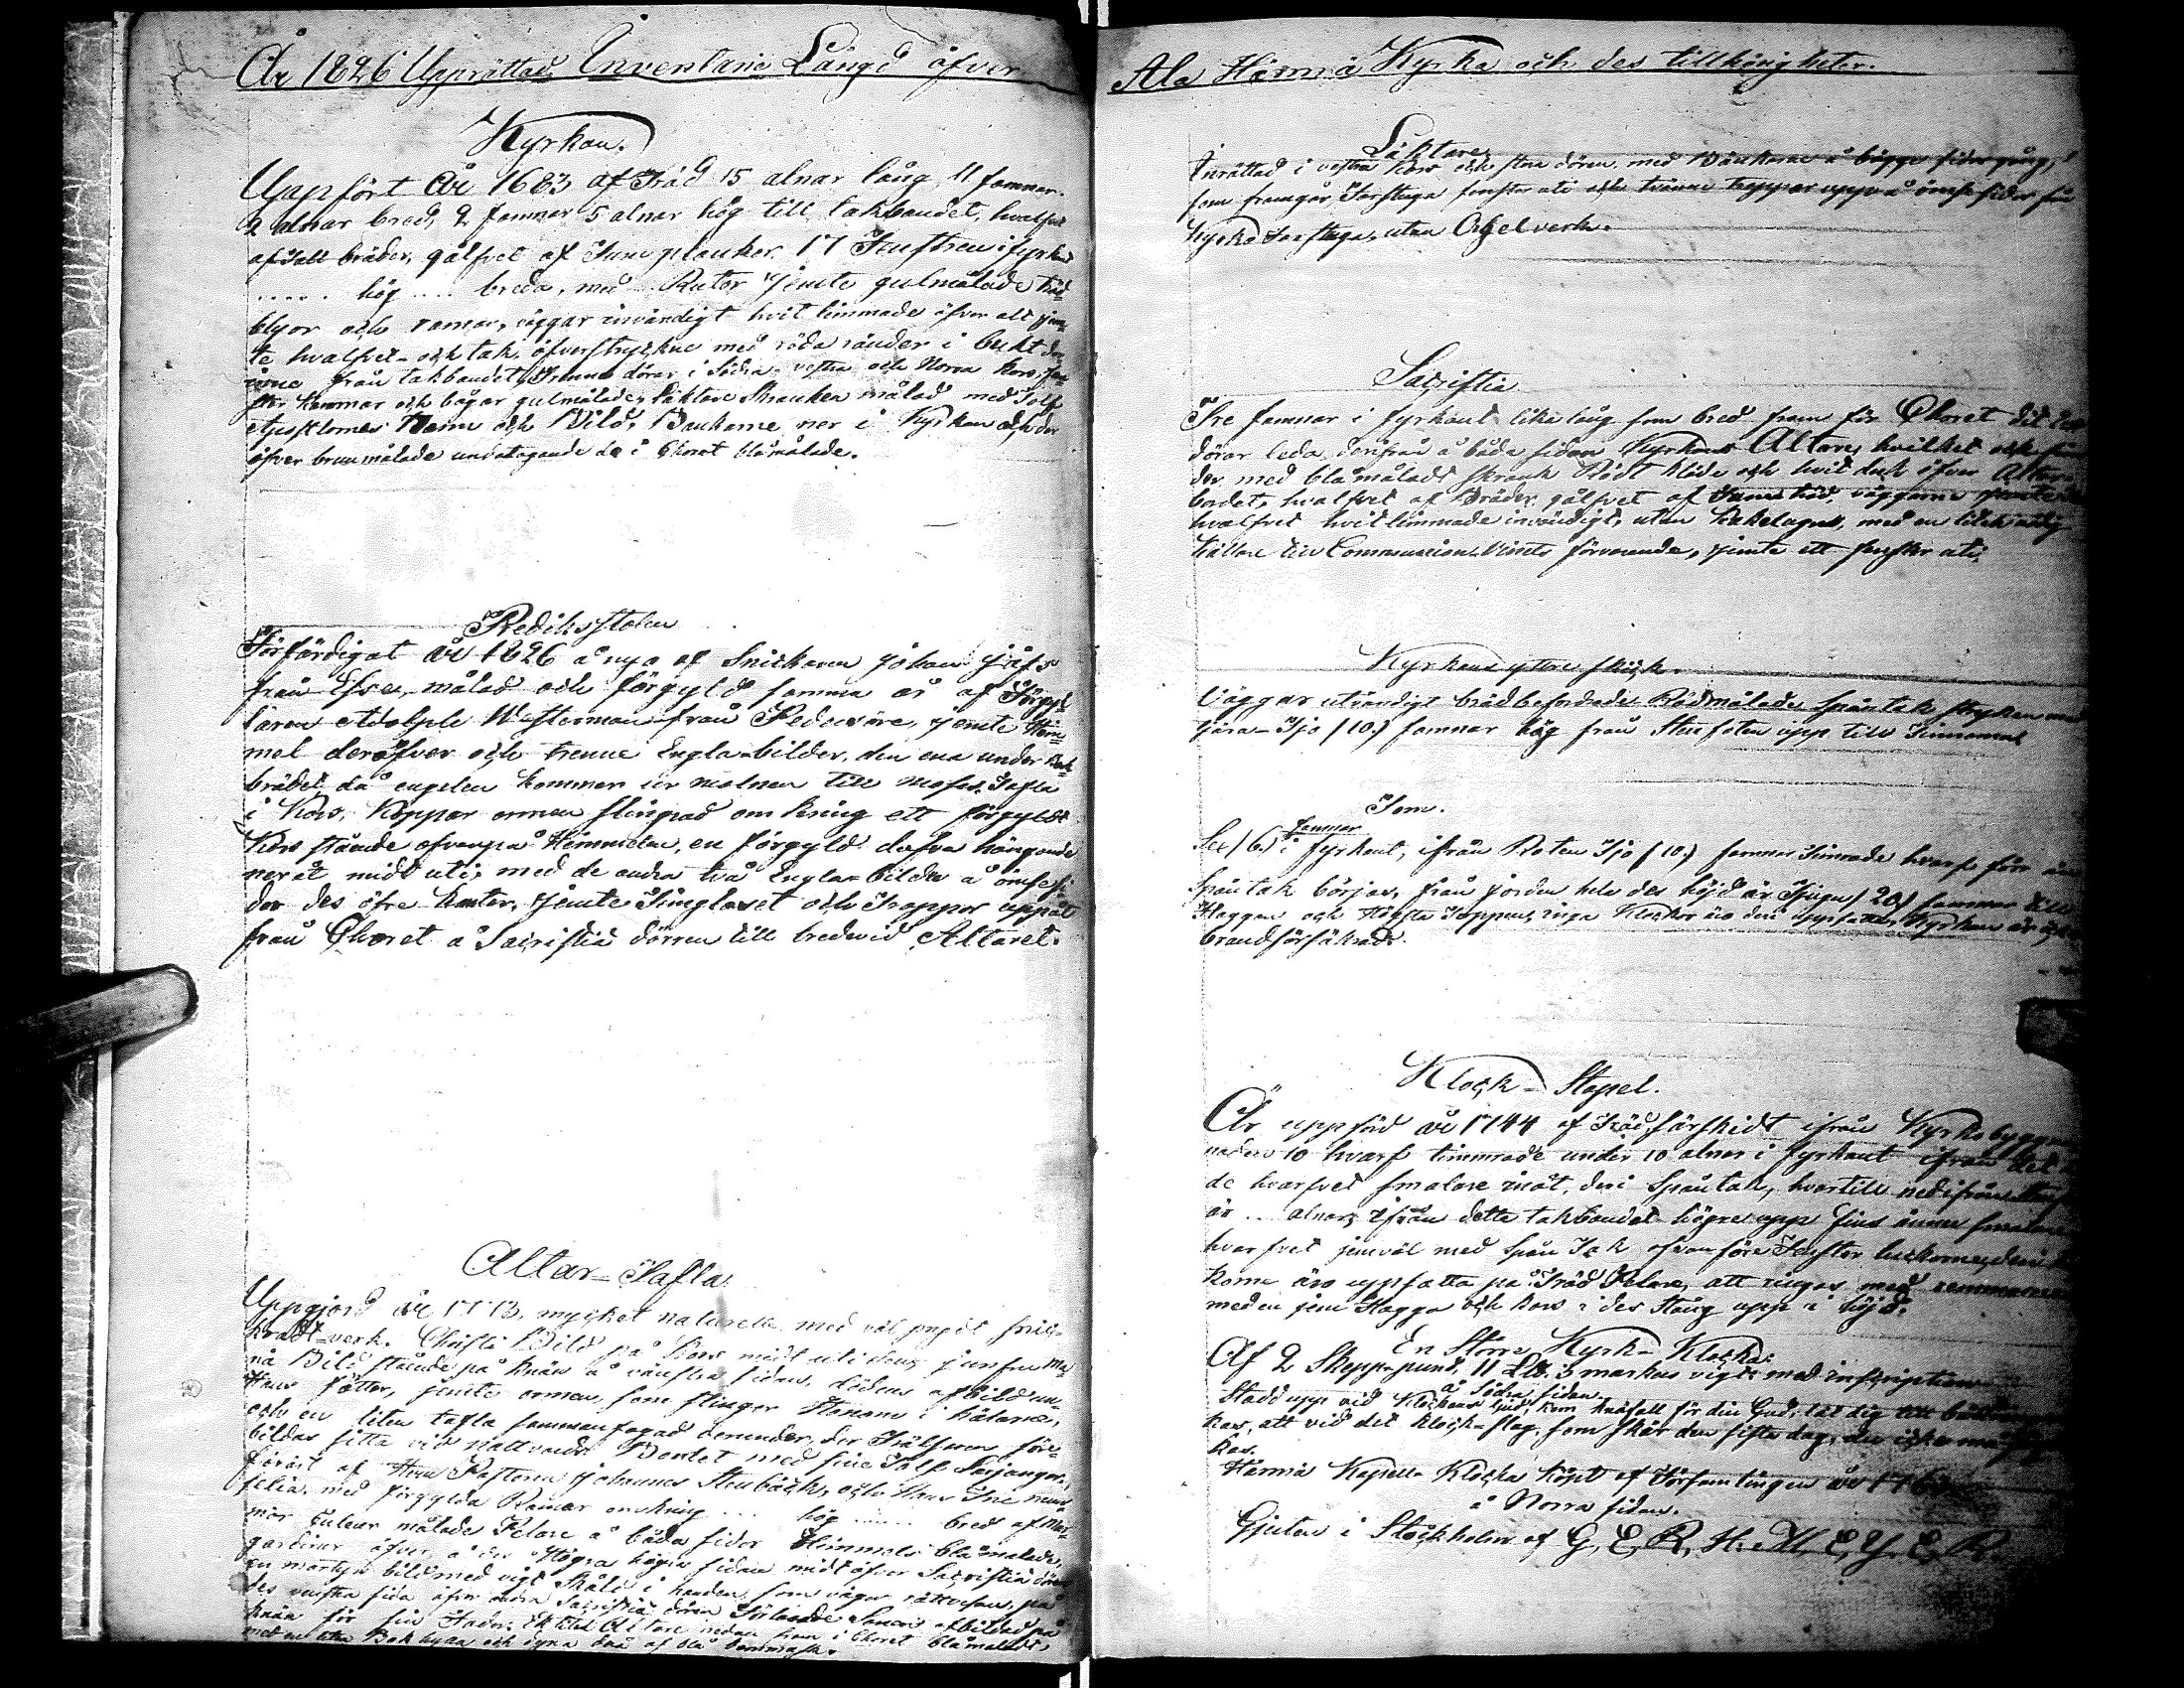 År 1826 Upprättad Inventarie Längd öfver
Kyrkan.
Uppfört År 1683 af Träd 15 alnar lång, 11 famnar
2 alnar bred, 2 famnar 5 alnar hög till takbandet, hvalfvet
af Tall bräder, gålfvet af Furu plankor. 17 Fenstren i fyrkant
..... hög .... breda, med Rutor jemte gulmålade träd
blyor och ramar, väggar invändigt hvit limmade öfver alt jem-
te hvalfvet och tak, öfverstrykne med röda ränder i
från takbandet, Trenne dörar i Södra vestra och Norra kors, fen-
ster karmar och bågar gulmålade, Läktare Skranken målad med Tolf
Apostlarnes Namn och Bild, Bänkarne ner i Kyrkan och der
öfver brunmålade undantagande de i Choret blåmålade.
Predikostolen
Förfärdigat år 1826 å nyo af Snickaren Johan
från Esse, målad och förgyld samma år af Förgyl
laren Adolph Westerman från Pedersöre, jemte Him-
mel deröfver och trenne Engla-bilder, den ena under Bok
brädet då engelen kommer ur molnen till Moses. Tafla
i Kors, Koppar ormen slingrad omkring ett förgyldt
Kors stående ofvanpå Himmelen, en förgyld dufva hängande
neråt midt uti, med de andra två Engla-bilder å ömse si-
dor des öfre kanter, jemte Timglaset och Trappor uppåt
från Choret å Sacristiæ dörren till bredevid Altaret.
Altar-Tafla.
Uppgjord år 1773, mycket naturelle med väl prydt snic-
kradt-verk. Christi Bild på Kors midt uti dens, jungfru Ma-
riæ Bild stående på knän å vänstra sidan, dödens afbild un-
Hans fötter, jemte ormen, som slingar Honom i hälarne,
och en liten tafla sammanfogad derunder, der Frälsaren före-
bildas sitta vid Nattvards Bordet med sine Tolf Lärjungar,
förärt af Herr Pastoren Johannes Stenbäck, och Hans Fru
med förgylda Ramar omkring ... hög ..... bred af Mar-
mor Culeur målade Pelare å båda sidor Himmels blå målade
gardiner öfver, å des Högra högra sidan midt öfver Sacristiæ dören
en martyr bild med vigt skålé i handen, som väger rättvisan, på
des venstra sida öfver andra Sacristiæ dören afbildad på
knän för sin Fader. Ett litet Altare nedan fram i Choret blåmåladt,
med en liten Bok hylla och dyna derå af blå dammask.
Ala Härmä Kyrka och des tillhörigheter.
Läktare
Inrättad i vestra Kors och stora dören med Bänkarne å bägge sidor gång,
som framgår, Farstuga fenster uti och tvänne trappor uppå å ömse sidor från
Kyrko Farstuga, utan Orgelverk.
Sacristia
Tre famnar i fyrkant lika lång som bred fram för Choret dit två
dörar leda derifrån å båda sidan Kyrkans Altare, hvilket och
der med blå målad skrank Rödt kläde och hvit duk öfver Altar
bordet, hvalfvet af Bräder gålfvet af samma träd, väggarne jemte
hvalfvet hvitlimmade invändigt, utan kakelugn, med en liten
källare till Communion Vinets förvarande, jemte ett fenster uti.
Kyrkans yttre skick.
Väggar utvändigt brädbefordrade Rödmålade, Spåntak strykan med
tjära - Tjo (10.) famnar hög från Stenfoten upp till
Torn.
famnar
Sex (6.) i fyrkant, ifrån Roten Tjo (10.) famnar timrade hvarf förr än
Spåntak börjar, från jorden hela des höjd är Tjugu (20) famnar till
Flaggan och Högsta Toppen, inga Klockor äro der uppsatta, Kyrkan är icke
brandförsäkrad.
Klock-Stapel.
Är uppförd år 1744 af Träd, särskildt ifrån Kyrkobygg
naden 10 hvarf timmrade under 10 alnar i fyrkant ifrån det
de hvarfvet smalare inåt, deri Spåntak, hvartill nedifrån
är .. alnar, ifrån detta takbandet högre upp fins ännu
hvarfvet jemväl med Spån Tak ofvanföre Fenster luckorne,
korne äro uppsatta på Träd Pelare, att ringas med remmar
med en jern Flagga och kors i des Stång upp i höjd.
En Större Kyrk-Klocka:
Af 2 Skepp-pund, 11 ℔. 3 markers vigt med inscription
å Södra sidan.
Stadd upp vid Klockans ljud, kom knäfall för din Gud: lät dig till
kas, att vid det klock-slag, som skär den sista dag, du icke må
kas.
Härmä Kapells Klocka köpt af Församlingen år 176
å Norra sidan.
Gjuten i Stockholm af G, E, R, H. M, E, Y, E, R.